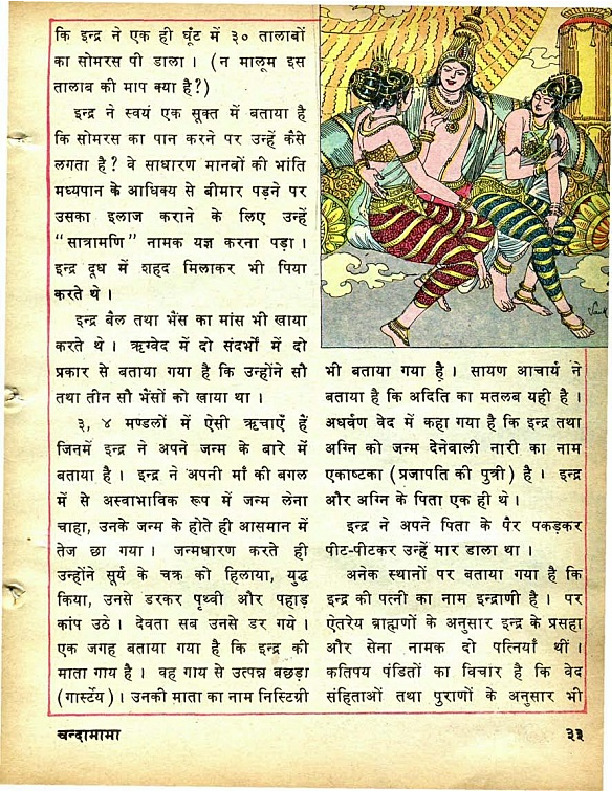 कि इन्द्र ने एक ही घूंट में ३० तालाबों
का सोमरस पी डाला । (न मालूम इस
तालाब की माप क्या है?)
इन्द्र ने स्वयं एक सूक्त में बताया है
कि सोमरस का पान करने पर उन्हें कैसे
लगता है? वे साधारण मानवों की भांति
मध्यपान के आधिक्य से बीमार पड़ने पर
उसका इलाज कराने के लिए उन्हें
“सात्रामणि” नामक यज्ञ करना पड़ा ।
इन्द्र दूध में शहद मिलाकर भी पिया
करते थे ।
इन्द्र बैल तथा भैंस का मांस भी खाया
करते थे । ऋग्वेद में दो संदर्भों में दो
प्रकार से बताया गया है कि उन्होंने सौ
तथा तीन सौ भैंसों को खाया था ।
३, ४ मण्डलों में ऐसी ऋचाएँ हैं
जिनमें इन्द्र ने अपने जन्म के बारे में
बताया है । इन्द्र ने अपनी माँ की बगल
में से अस्वाभाविक रूप में जन्म लेना
चाहा, उनके जन्म के होते ही आसमान में
तेज छा गया । जन्मधारण करते ही
उन्होंने सूर्य के चक्र को हिलाया, युद्ध
किया, उनसे डरकर पृथ्वी और पहाड़
कांप उठे । देवता सब उनसे डर गये ।
एक जगह बताया गया है कि इन्द्र की
माता गाय है । वह गाय से उत्पन्न बछड़ा
(गार्स्टेय) । उनकी माता का नाम निस्टिग्री
भी बताया गया है । सायण आचार्य ने
बताया है कि अदिति का मतलब यही है ।
अधर्वण वेद में कहा गया है कि इन्द्र तथा
अग्नि को जन्म देनेवाली नारी का नाम
एकाष्टका (प्रजापति की पुत्री) है । इन्द्र
और अग्नि के पिता एक ही थे ।
इन्द्र ने अपने पिता के पैर पकड़कर
पीट-पीटकर उन्हें मार डाला था ।
अनेक स्थानों पर बताया गया है कि
इन्द्र की पत्नी का नाम इन्द्राणी है । पर
ऐतरेय ब्राह्मणों के अनुसार इन्द्र के प्रसहा
और सेना नामक दो पत्नियाँ थीं ।
कतिपय पंडितों का विचार है कि वेद
संहिताओं तथा पुराणों के अनुसार भी
चन्दामामा
३३